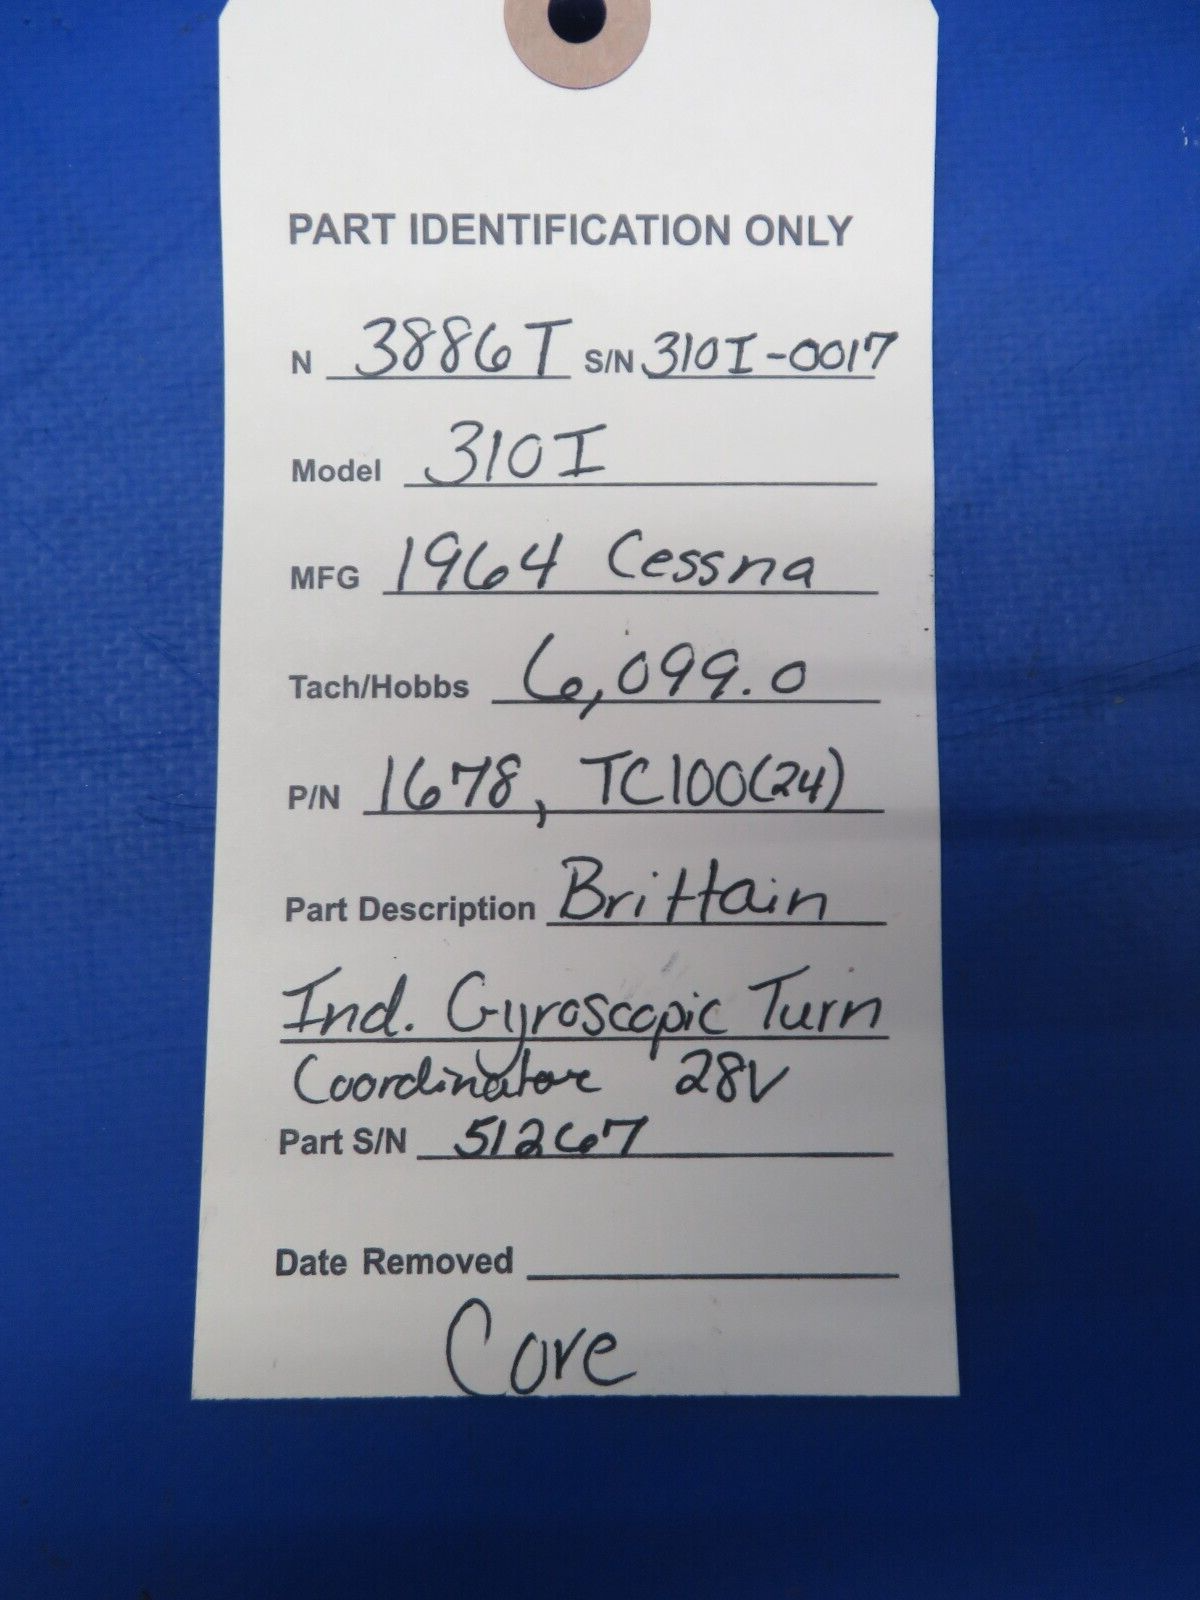 PART IDENTIFICATION ONLY
N 3886T S/N 310I-0017
Model 310I
MFG 1964 Cessna
Tach/Hobbs 6,099.0
P/N 1678, TC100(24)
Part Description Brittain
Ind. Gyroscopic Turn
Coordinator 28V
Part S/N 51267
Date Removed
Core